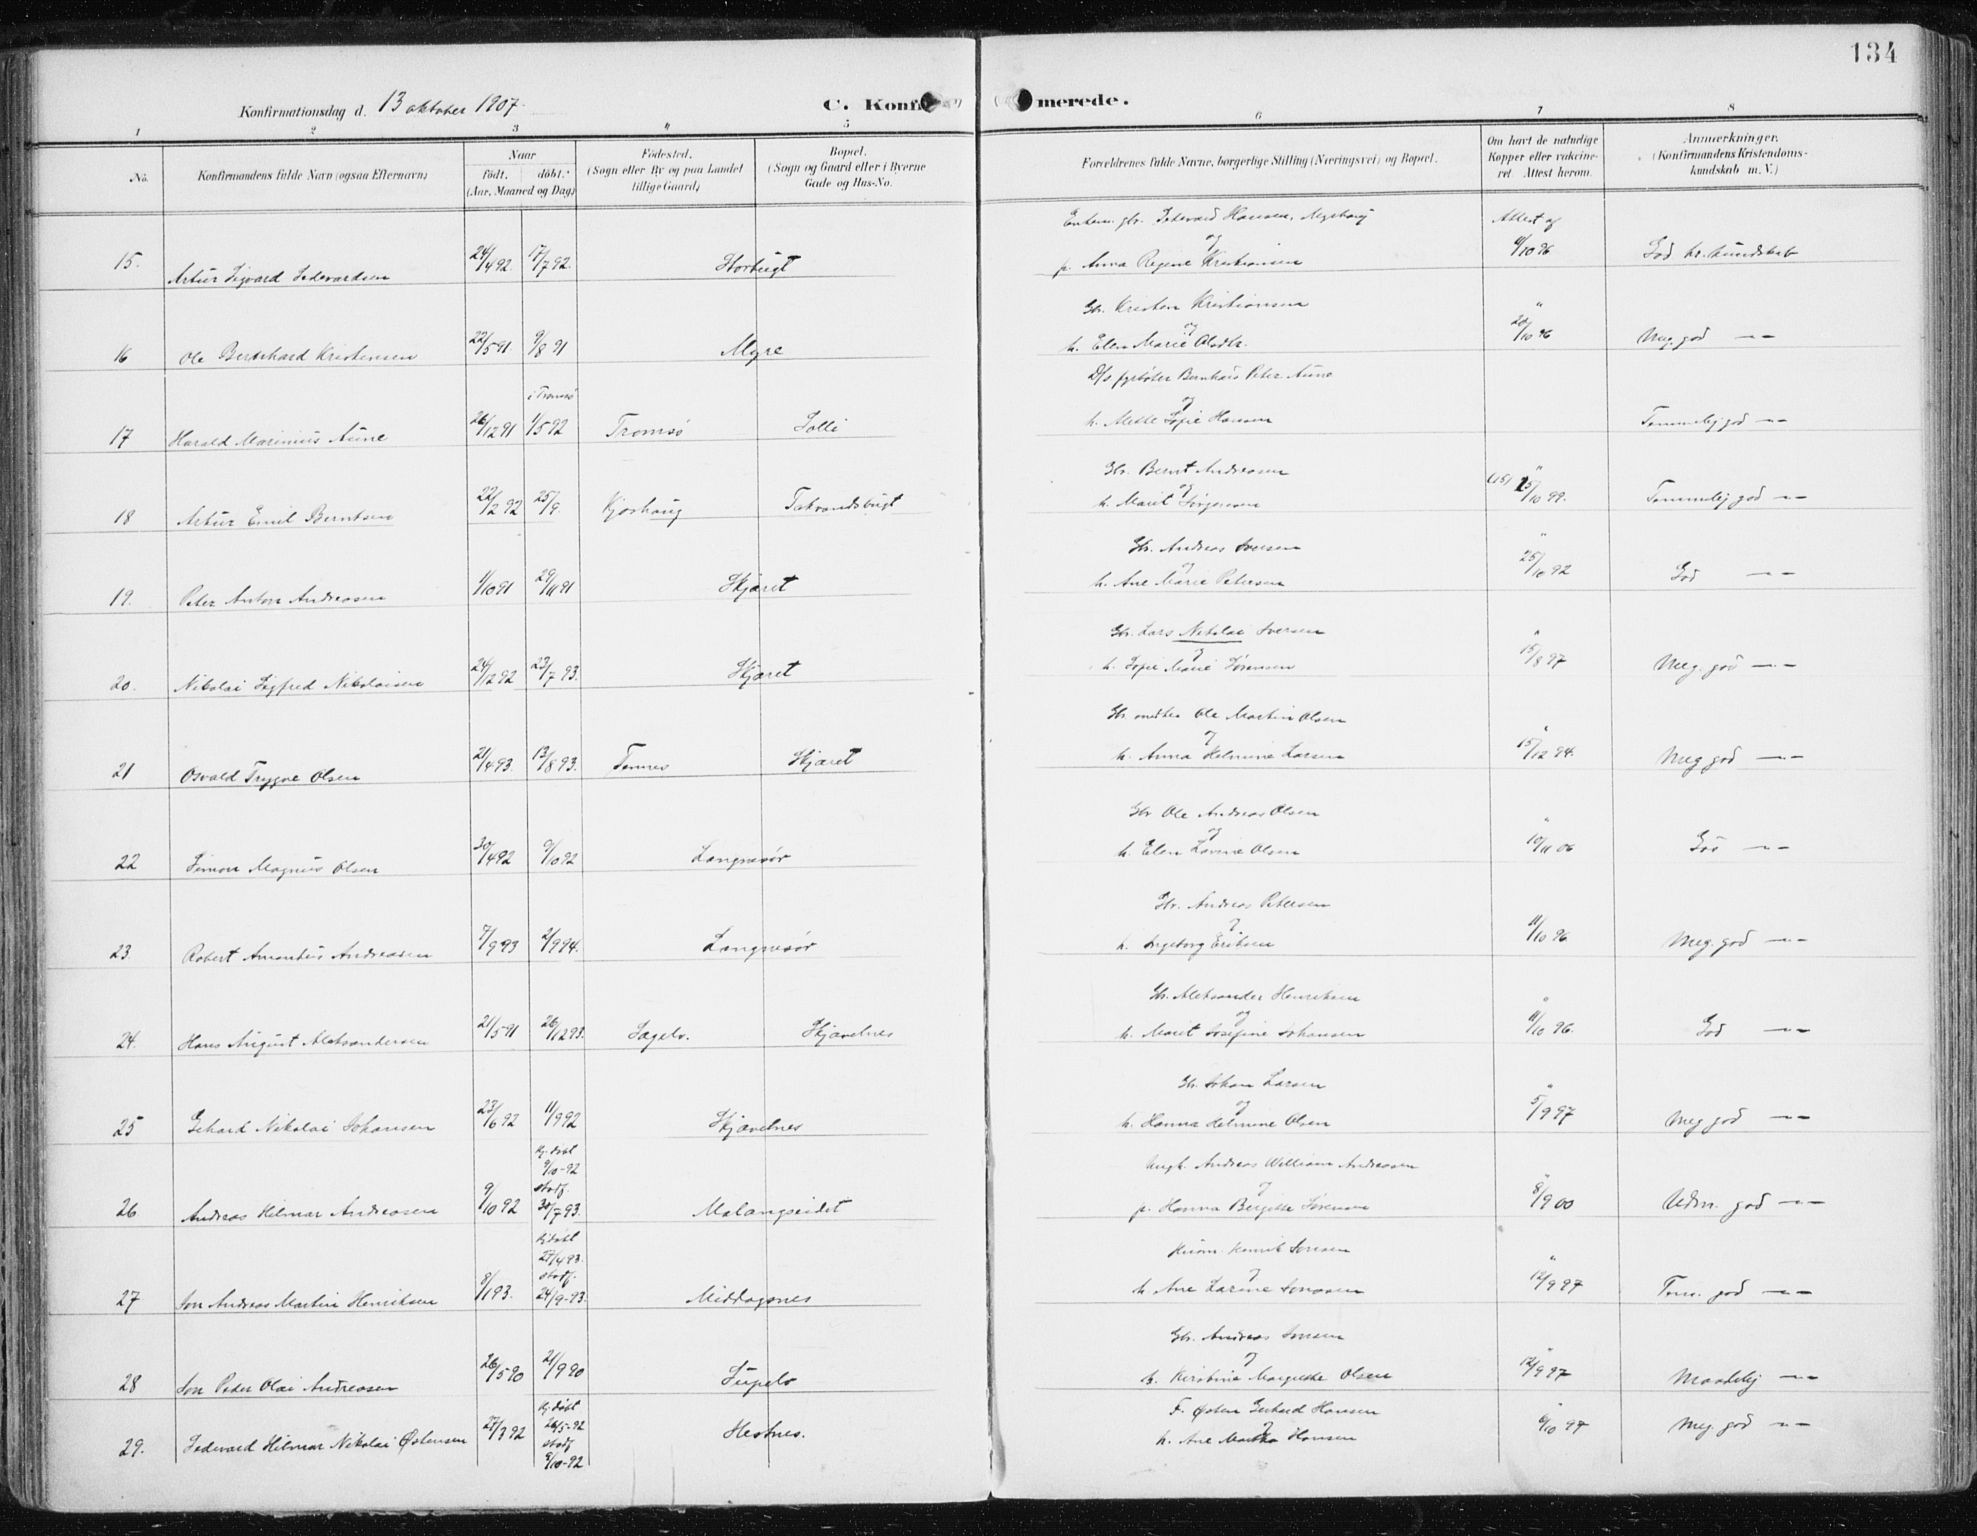 134
Konfirmationsdag d. 13 oktober 1907. C. Konfir merede.
1 2 3 4 5 6 7 8
No. Konfirmandens fulde Navn (ogsaa Efternavn)
Naar
født. døbt.
(Aar, Maaned og Dag)
Fødested.
(Sogn eller By og paa Landet
tillige Gaard)
Bopæl.
(Sogn og Gaard eller i Byerne
Gade og Hus-No.
Forældrenes fulde Navne, borgerlige Stilling (Næringsvei) og Bopæl.
Om havt de naturlige
Kopper eller vakcine-
ret. Attest herom.
Anmærkninger.
(Konfirmandens Kristendoms-
kundskab m. V.)
Enkem. gbr. Sedevard Hansen, Attest af
15. Artur Sigvard Sedevardsen 24/4 92. 17/7 92. Storbugt og 9/10 96 God kr. kundskab
p. Anna Regine Kristiansen
Gbr. Kristen Kristiansen "
16 Ole Bernhard Kristensen 22/5 91 9/8 91 Myre og 20/10 96 Meg. god — " —
h. Elen Marie Olsdtr.
i Tromsø D/s fyrbøter Bernhard Peter Aune
17 Harald Marinius Aune 26/12 91 1/5 92 Tromsø Solli og Temmelig god — " —
h. Mette Sofie Hansen
Gbr. Bernt Andreasen "
18 Artur Emil Berntsen 22/2 92 25/9. Kjoshaug Takvandsbugt og 25/10 99. Temmelig god — " —
h. Marit Jørgensen
Gbr. Andreas Iversen "
19. Peter Anton Andreasen 1/10 91 29/11 91 Skjæret og 25/10 92 God — " —
h. Ane Marie Petersen
Gbr. Lars Nikolai Iversen "
20. Nikolai Sigfred Nikolaisen 24/12 92 23/7 93. Skjæret og 15/8 97 Meg. god — " —
h. Sofie Marie Sørensen
Gbr. Ole Martin Olsen "
21 Osvald Trygve Olsen 21/4 93. 13/8 93. Tennes Skjæret og 15/12 94. Meg god — " —
h. Anna Helmine Larsen
Gbr Ole Andreas Olsen "
22 Simon Magnus Olsen 30/4 92 9/10 92 Langnesør og 10/11 06 God — " —
h. Elen Lovise Olsen
Gbr. Andreas Petersen
23. Robert Amandus Andreasen 7/9 93 2/9 94. Langnesør og 11/10 96. Meg. god — " —
h. Ingeborg Eriksen
Gbr. Aleksander Henriksen "
24. Hans August Aleksandersen 21/5 91 26/12 93. Sagelv. Skjævelnes og 11/10 96. God — " —
h. Marit Josefine Johansen
Gbr. Johan Larsen "
25 Gehard Nikolai Johansen 23/6 92 11/9 92 Skjævelnes og 5/9 97 Meg god — " —
h. Hanna Helmine Olsen
hj. døbt
9/10-92
stadf. Ungk. Andreas William Andreasen "
26. Andreas Hilmar Andreasen 9/10 92 30/7 93. Malangseidet og 8/9 00 Udm. god — " —
p. Hanna Bergitte Sørensen
hj. døbt
27/4 93.
stadf. Henrik Jonsen "
27 Jon Andreas Martin Henriksen 8/1 93. 24/9-93. Middagsnes og 12/9 97 Tem. god — " —
h. Ane Larine Jonassen
Gbr. Andreas Jonsen "
28 Jon Peder Olai Andreasen 26/5 90 21/9 90 Sujelv og 12/9 97 Maadelig — " —
h. Kirstine Margrethe Olsen
hj. døbt
26/5-92 F. Østen Gerhard Hansen "
29. Sedevard Hilmar Nikolai Østensen 27/3 92 Hestnes. og 6/10 97 Meg. god — " —
stadf.
9/10-92 h. Ane Martha Hansen